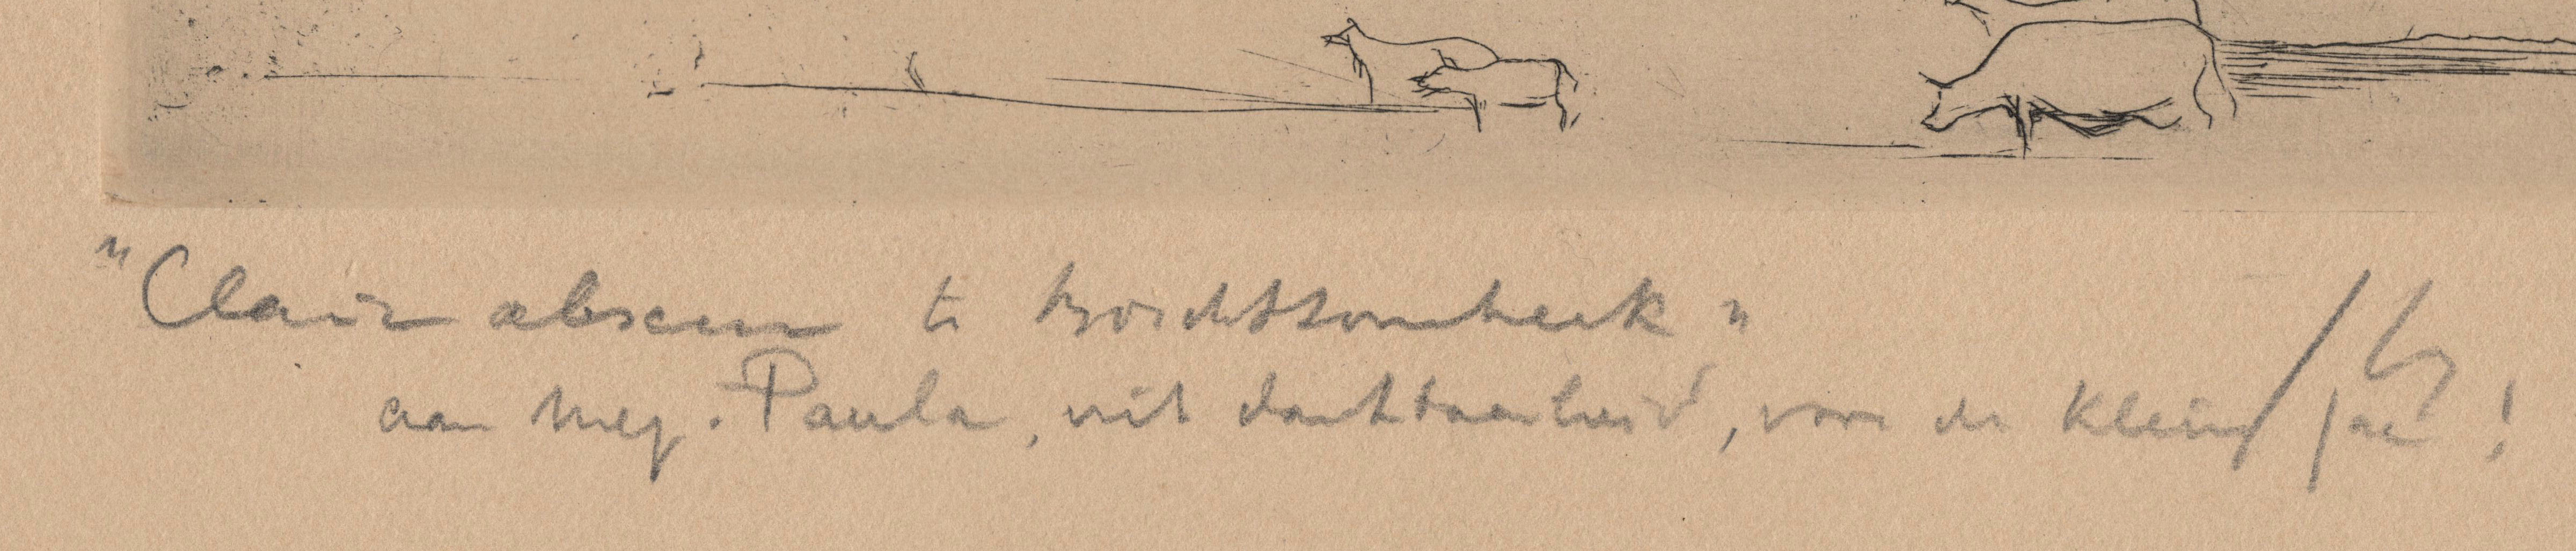 "Clair obscur te Borchtlombeek"
aan mej. Paula, uit dankbaarheid, voor de kleine